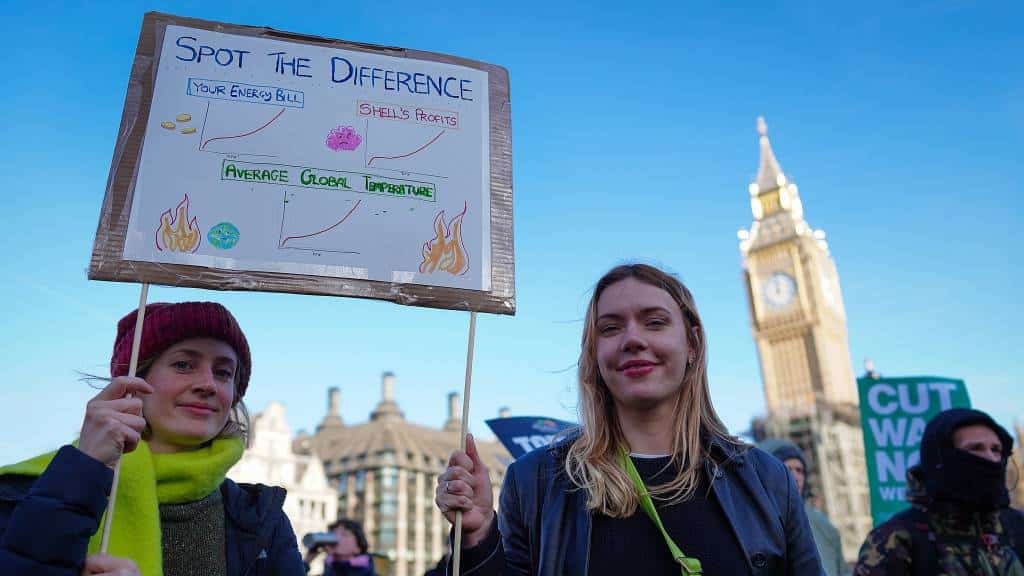 SPOT THE DIFFERENCE
YOUR ENERGY BILL
SHELL'S PROFITS
AVERAGE GLOBAL TEMPERATURE
CUT
WE